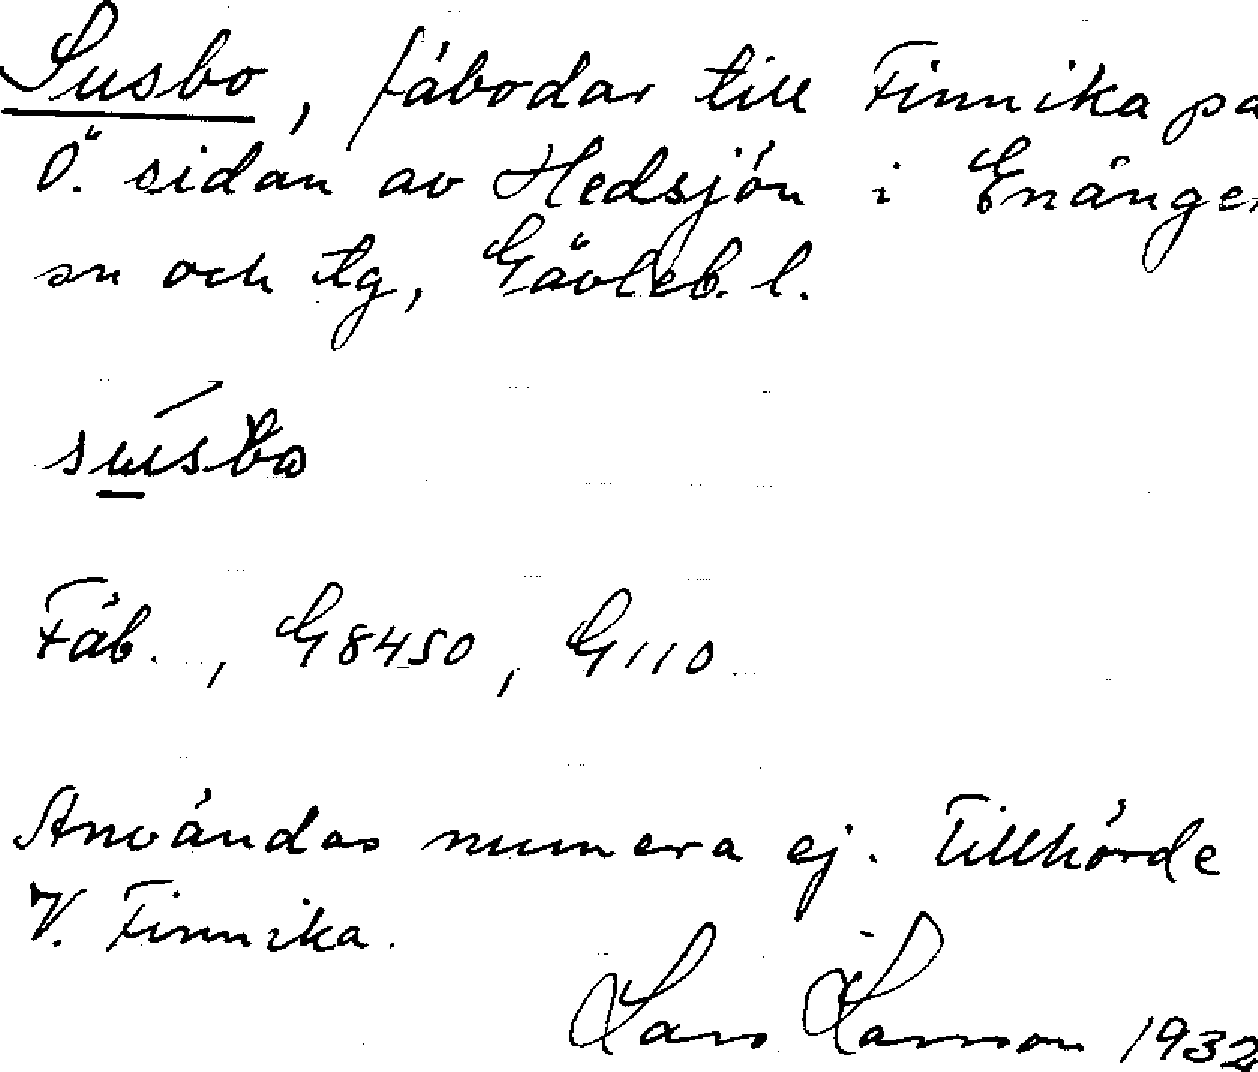 Susbo, fäbodar till Finnika på
Ö. sidan av Hedsjön i Enånger
sn och tg, Gävleb. l.
Fäb., G8450, G1110
Användes numera ej. Tillhörde
V. Finnika.
Lars Larsson 1932